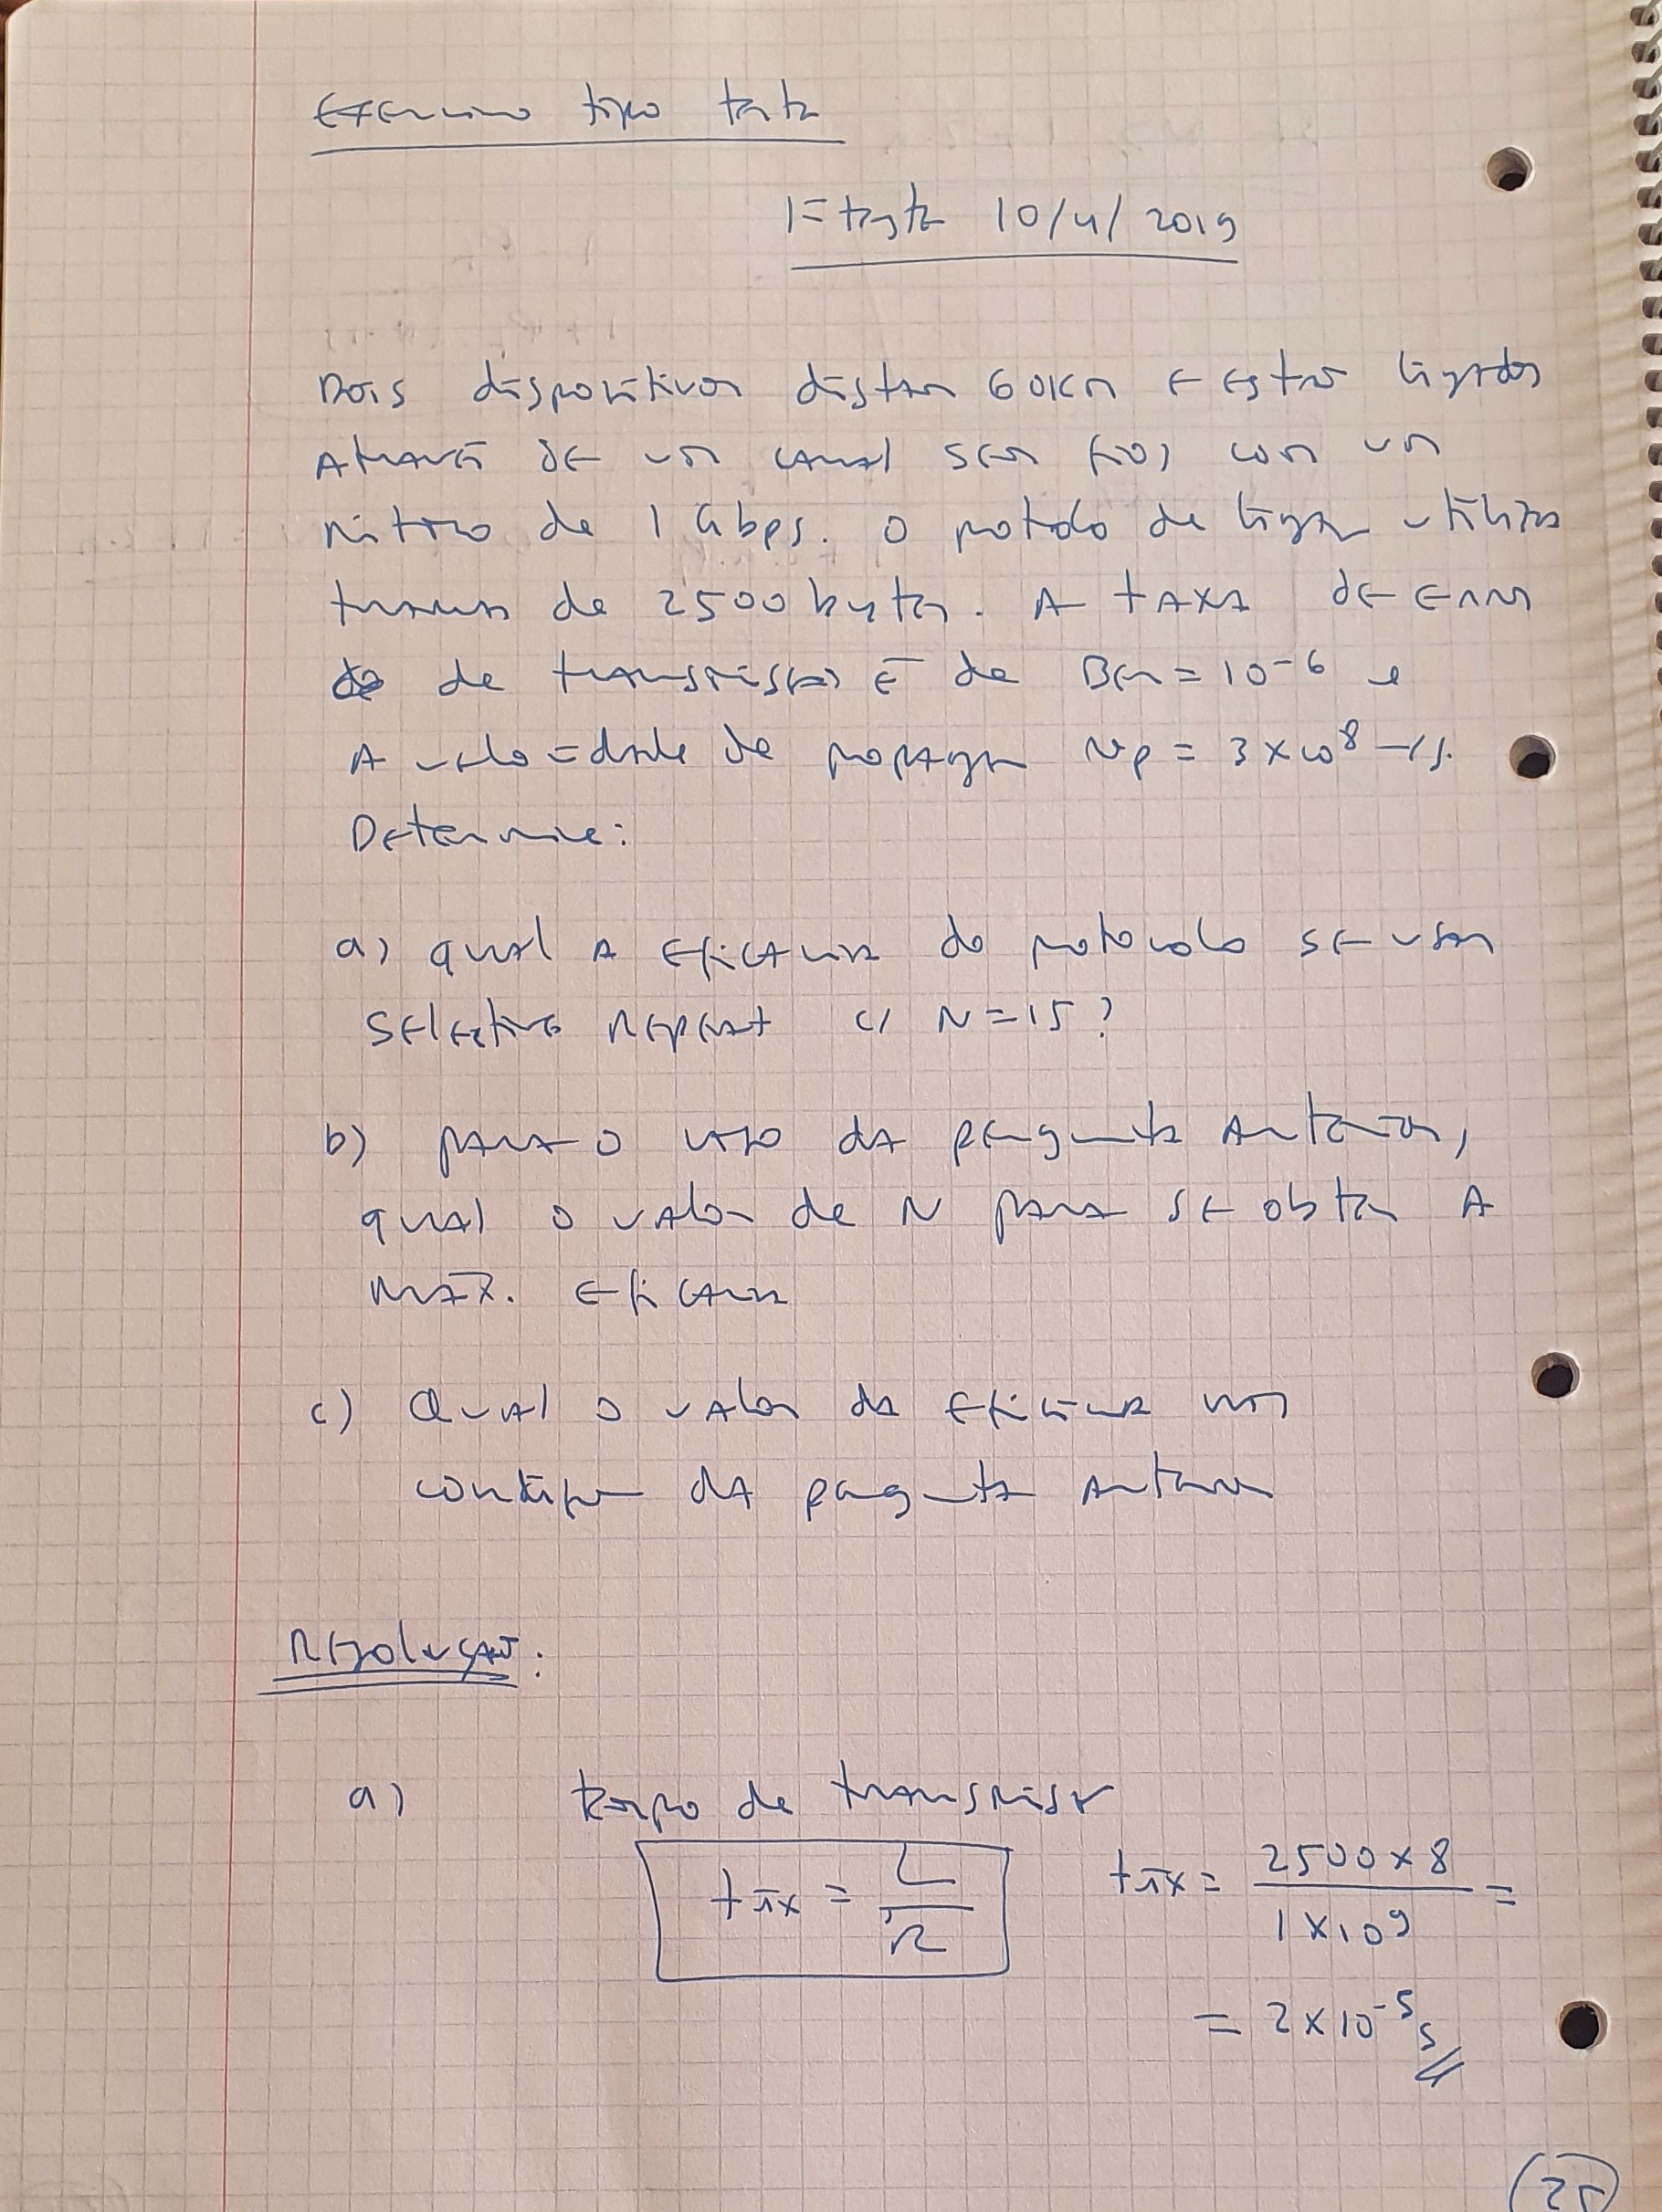 Exercício tipo teste
1º teste 10/4/2019
Dois dispositivos distam 60Km E Estão ligados
Através DE um canal SEm fios com um
ritmo de 1 Gbps. O protocolo de ligação utiliza
tramas de 2500 bytes. A TAXA DE Erros
de transmissão É de Ber = 10⁻⁶ e
A velocidade de propagação Vp = 3 x 10⁸ m/s.
Determine:
a) qual A Eficiência do protocolo SE usar
SElective REPEAT c/ N = 15?
b) para O caso da pergunta Anterior,
qual o valor de N para SE obter A
máx. Eficiência
c) Qual o valor da Eficiência nas
condições da pergunta Anterior
REsolução:
a) tempo de transmissão
tTx = L / R
tTx = 2500 x 8 / 1 x 10⁹ =
= 2 x 10⁻⁵ s
25